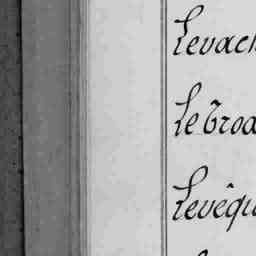 Levach
Le Broa
Levêqu